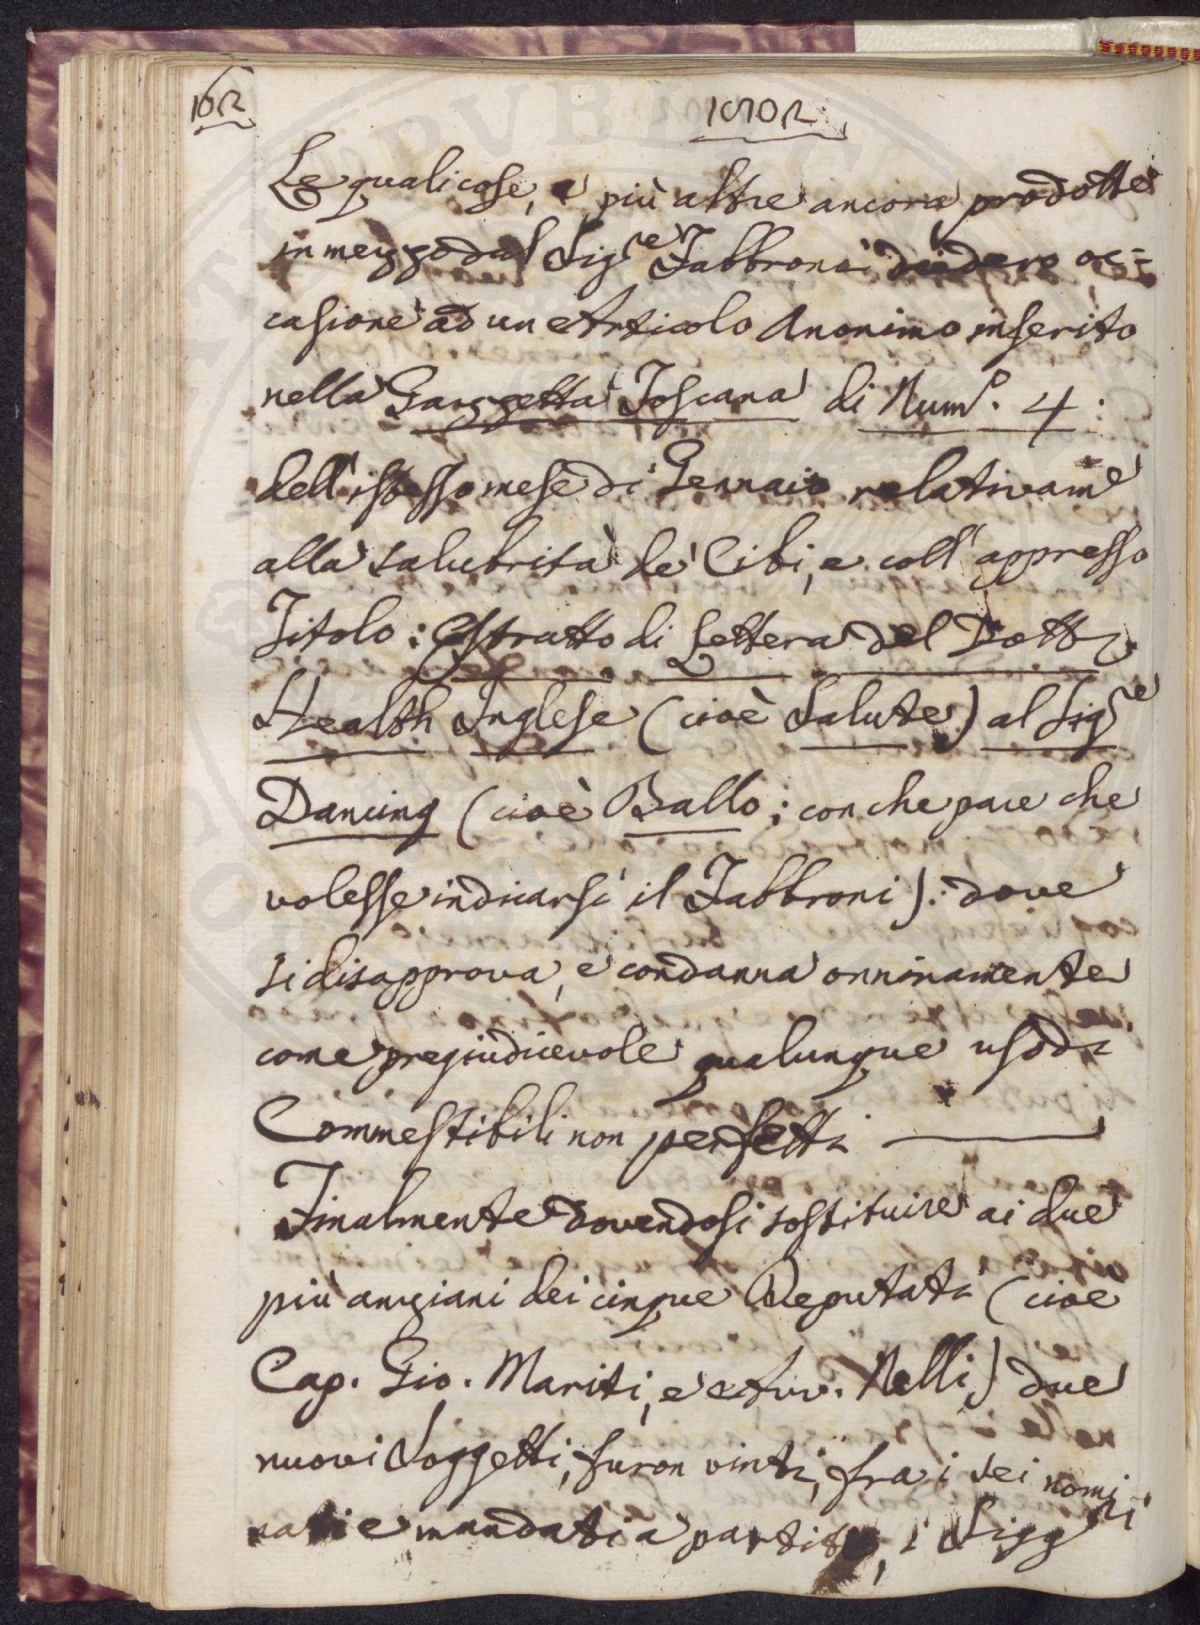 102
1792
Le quali cose, e più altre ancora prodotte
in mezzo dal Sig.re Fabbroni diedero oc=
casione ad un Articolo Anonimo inserito
nella Gazzetta Toscana di Num.o 4:
dell'istesso mese di Gennaio relativam.e
alla salubrità de' Cibi, e coll'appresso
Titolo: Estratto di Lettera del Dott.r
Health Inglese (cioè Salute) al Sig.re
Dancing (cioè Ballo; con che pare che
volesse indicarsi il Fabbroni): dove
si disapprova, e condanna onninamente
come pregiudicevole qualunque uso di
Commestibili non perfetti
Finalmente dovendosi sostituire ai due
più anziani dei cinque Deputati (cioè
Cap. Gio. Mariti, e Avv. Nelli) due
nuovi Soggetti, furon vinti, fra i sei nomi-
nati e mandati a partito, i Sigg.ri